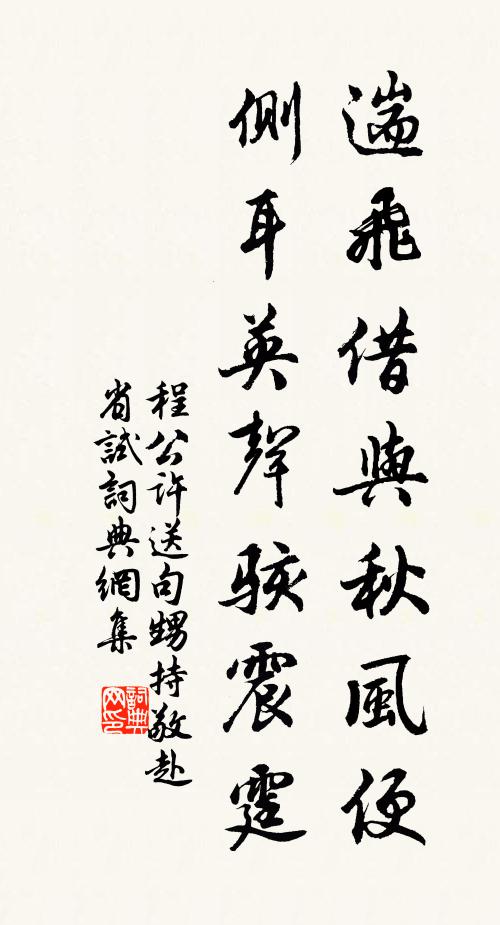 遄飛借與秋風便
側耳英聲駭震霆
程公許送句甥持敬赴
省試詞典網集
詞典網印